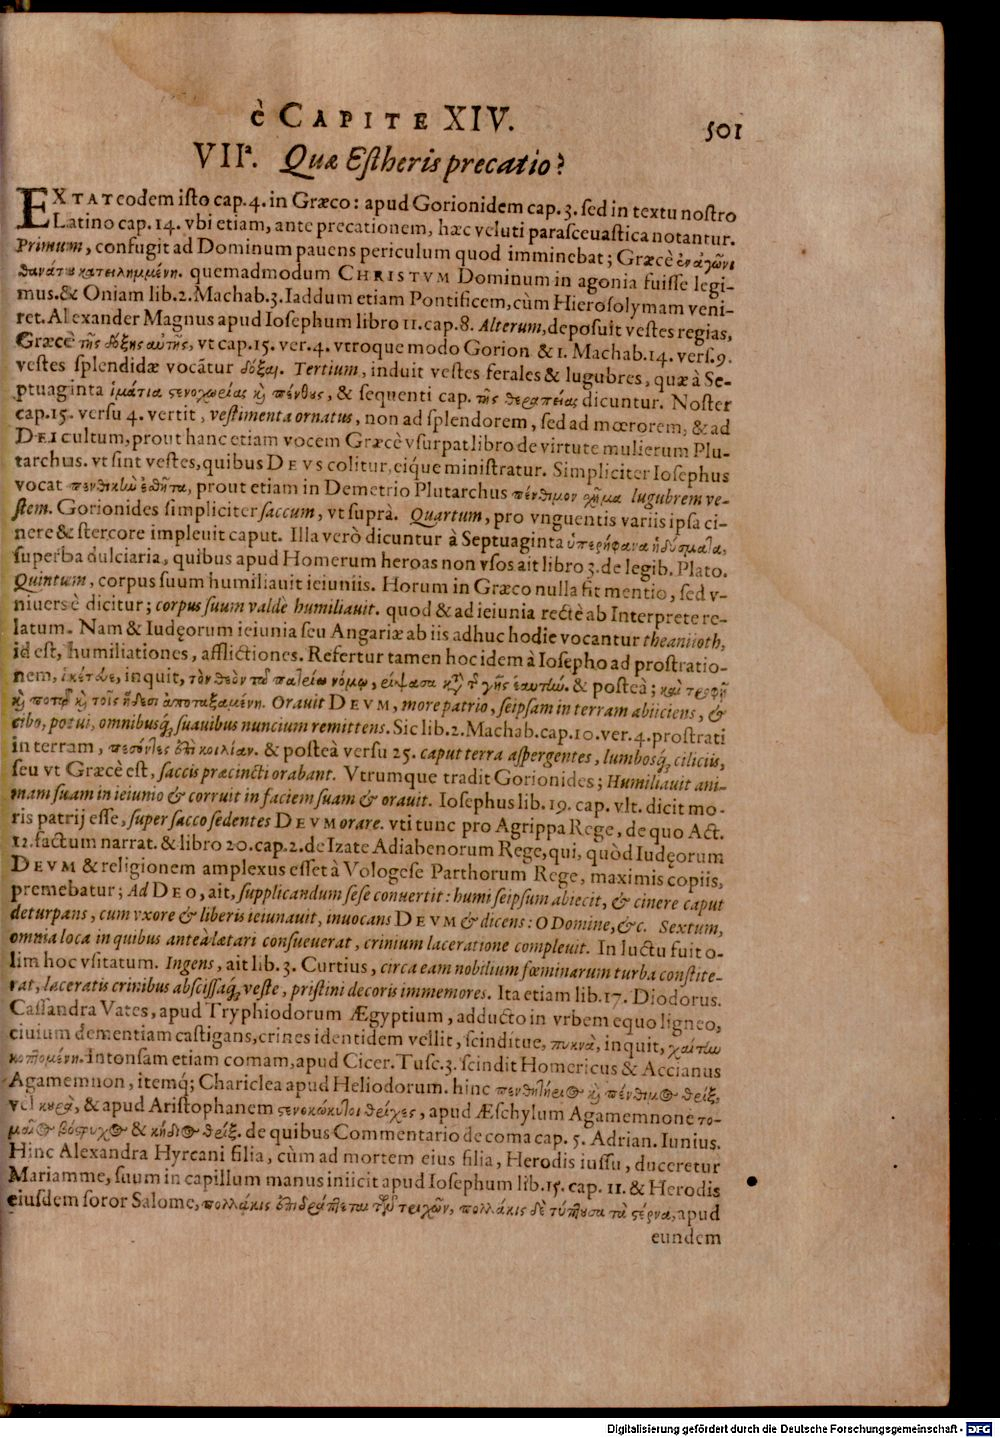 è CAPITE XIV.
501
VIIª. Quæ Estheris precatio?
EXTAT eodem isto cap. 4. in Græco: apud Gorionidem cap. 3. sed in textu nostro
Latino cap. 14. vbi etiam, ante precationem, hæc veluti parasceuastica notantur.
Primum, confugit ad Dominum pauens periculum quod imminebat; Græcè ἐν ἀγῶνι
θανάτου κατειλημμένη. quemadmodum CHRISTVM Dominum in agonia fuisse legi-
mus. & Oniam lib. 2. Machab. 3. Iaddum etiam Pontificem, cùm Hierosolymam veni-
ret. Alexander Magnus apud Iosephum libro 11. cap. 8. Alterum, deposuit vestes regias,
Græcè τῆς δόξης αὐτῆς, vt cap. 15. ver. 4. vtroque modo Gorion & 1. Machab. 14. vers. 9.
vestes splendidæ vocãtur δόξαι. Tertium, induit vestes ferales & lugubres, quæ à Se-
ptuaginta ἱμάτια ςενοχωρίας κỳ πένθους, & sequenti cap. τῆς θεραπείας dicuntur. Noster
cap. 15. versu 4. vertit, vestimenta ornatus, non ad splendorem, sed ad mœrorem, & ad
DEI cultum, prout hanc etiam vocem Græcè vsurpat libro de virtute mulierum Plu-
tarchus. vt sint vestes, quibus DEVS colitur, eique ministratur. Simpliciter Iosephus
vocat πενθικὼ ἐσθῆτα, prout etiam in Demetrio Plutarchus πένθιμον σχῆμα lugubrem ve-
stem. Gorionides simpliciter saccum, vt suprà. Quartum, pro vnguentis variis ipsa ci-
nere & stercore impleuit caput. Illa verò dicuntur à Septuaginta ὑπερήφανα ἡδύσματα,
superba dulciaria, quibus apud Homerum heroas non vsos ait libro 3. de legib. Plato.
Quintum, corpus suum humiliauit ieiuniis. Horum in Græco nulla fit mentio, sed v-
niuersè dicitur; corpus suum valdè humiliauit. quod & ad ieiunia rectè ab Interprete re-
latum. Nam & Iudęorum ieiunia seu Angariæ ab iis adhuc hodie vocantur theaniioth,
id est, humiliationes, afflictiones. Refertur tamen hoc idem à Iosepho ad prostratio-
nem, inquit, τὸν θεὸν τῷ πατρίῳ νόμῳ, ῥίψασα κατὰ τῆς γῆς ἑαυτὼ. & posteà; καὶ τροφῇ
κỳ ποτῷ κỳ τοῖς ἡδέσι ἀποταξαμένη. Orauit DEVM, more patrio, seipsam in terram abiiciens, &
cibo, potui, omnibusq́; suauibus nuncium remittens. Sic lib. 2. Machab. cap. 10. ver. 4. prostrati
in terram, πεσόντες ἐπὶ κοιλίαν. & posteà versu 25. caput terra aspergentes, lumbosq́; ciliciis,
seu vt Græcè est, saccis præcincti orabant. Vtrumque tradit Gorionides; Humiliauit ani-
mam suam in ieiunio & corruit in faciem suam & orauit. Iosephus lib. 19. cap. vlt. dicit mo-
ris patrij esse, super sacco sedentes DEVM orare. vti tunc pro Agrippa Rege, de quo Act.
12. factum narrat. & libro 20. cap. 2. de Izate Adiabenorum Rege, qui, quòd Iudęorum
DEVM & religionem amplexus esset à Vologese Parthorum Rege, maximis copiis,
premebatur; Ad DEO, ait, supplicandum sese conuertit: humi seipsum abiecit, & cinere caput
deturpans, cum vxore & liberis ieiunauit, inuocans DEVM & dicens: O Domine, &c. Sextum,
omnia loca in quibus anteà lætari consueuerat, crinium laceratione compleuit. In luctu fuit o-
lim hoc vsitatum. Ingens, ait lib. 3. Curtius, circa eam nobilium fœminarum turba constite-
rat, laceratis crinibus abscissaq́; veste, pristini decoris immemores. Ita etiam lib. 17. Diodorus.
Cassandra Vates, apud Tryphiodorum Ægyptium, adducto in vrbem equo ligneo,
ciuium dementiam castigans, crines identidem vellit, scinditue, πυκνὰ, inquit, χαίτὼ
κοπτομένη. Intonsam etiam comam, apud Cicer. Tusc. 3. scindit Homericus & Accianus
Agamemnon, itemq́; Chariclea apud Heliodorum. hinc πενθητήριος κỳ πένθιμος θρίξ,
vel κουρὰ, & apud Aristophanem θρίχες, apud Æschylum Agamemnone το-
μαῖος βόςρυχος & κήδιος θρίξ. de quibus Commentario de coma cap. 5. Adrian. Iunius.
Hinc Alexandra Hyrcani filia, cùm ad mortem eius filia, Herodis iussu, duceretur
Mariamme, suum in capillum manus iniicit apud Iosephum lib. 15. cap. 11. & Herodis
eiusdem soror Salome, πολλάκις ἐπιδράττεται τῶν τριχῶν, πολλάκις δὲ τύπτουσα τὰ ςέρνα, apud
eundem
Digitalisierung gefördert durch die Deutsche Forschungsgemeinschaft - DFG